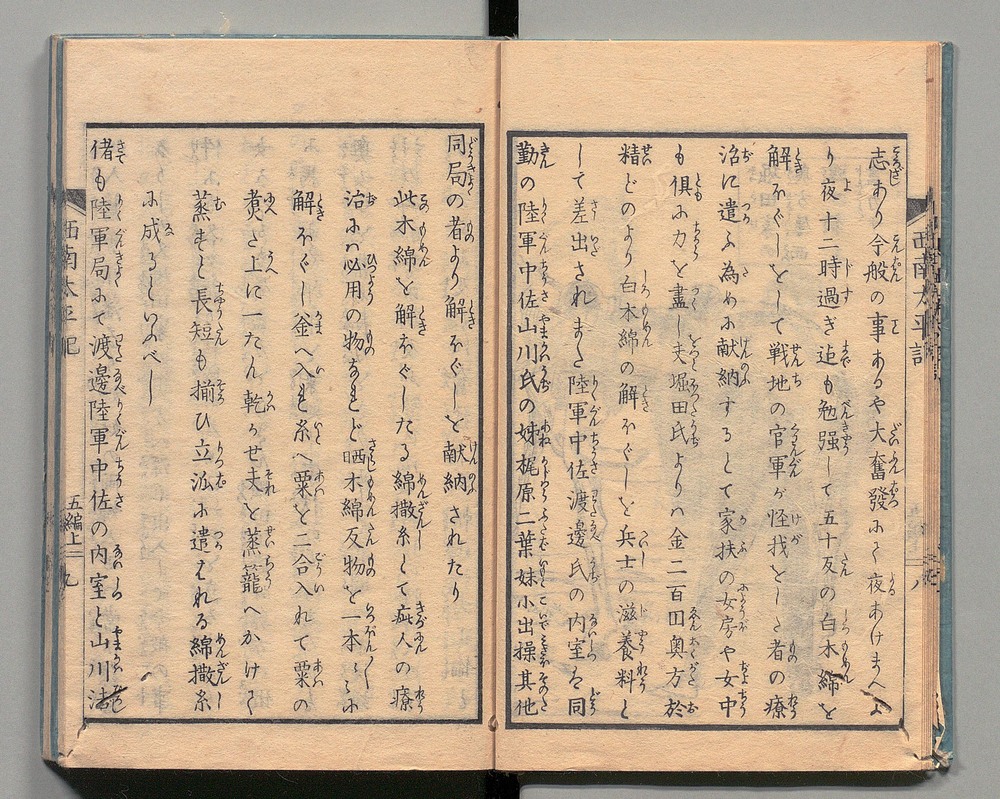 志あり今般の事あるや大奮發にて夜あけまへよ
り夜十二時過ぎ迠も勉強して五十反の白木綿を
解ほぐしをして戦地の官軍が怪我をした者の療
治に遣ふ為めに献納するとて家扶の女房や女中
も俱に力を盡し夫堀田氏よりハ金二百円奥方於
精どのより白木綿の解ほぐしを兵士の滋養料と
して差出されまた陸軍中佐渡邊氏の内室を同
勤の陸軍中佐山川氏の姉梶原二葉妹小出操其他
同局の者より解ほぐしを献納されたり
此木綿を解ほぐしたる綿撒糸とて疵人の療
治にハ必用の物なれど晒木綿反物を一本〻〻に
解ほぐし釜へ入れ糸へ粟を二合入れて粟の
煑た上に一たん乾かせ夫を蒸籠へかけよく
蒸すと長短も揃ひ立派に遣はれる綿撒糸
に成るといふべし
偖も陸軍局にて渡邊陸軍中佐の内室と山川浩
西南太平記
五編上
九
西南太平記
八